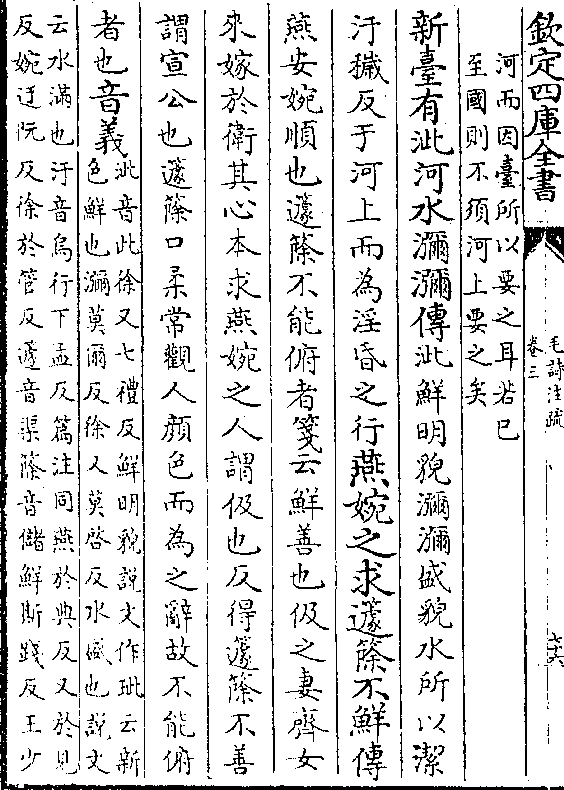 欽定四庫全書
毛詩注疏
卷三
六六
河而因臺所以要之耳若已
至國則不須河上要之矣
新臺有泚河水瀰瀰傳泚鮮明貌瀰瀰盛貌水所以潔
汙穢反于河上而為淫昏之行燕婉之求籧篨不鮮傳
燕安婉順也籧篨不能俯者箋云鮮善也伋之妻齊女
來嫁於衛其心本求燕婉之人謂伋也反得籧篨不善
謂宣公也籧篨口柔常觀人顔色而為之辭故不能俯
者也音義
泚音此徐又七禮反鮮明貌說文作玼云新
色鮮也瀰莫爾反徐又莫啓反水盛也說文
云水滿也汙音烏行下孟反篇注同燕於典反又於見
反婉迂阮反徐於管反籧音渠篨音儲鮮斯踐反王少